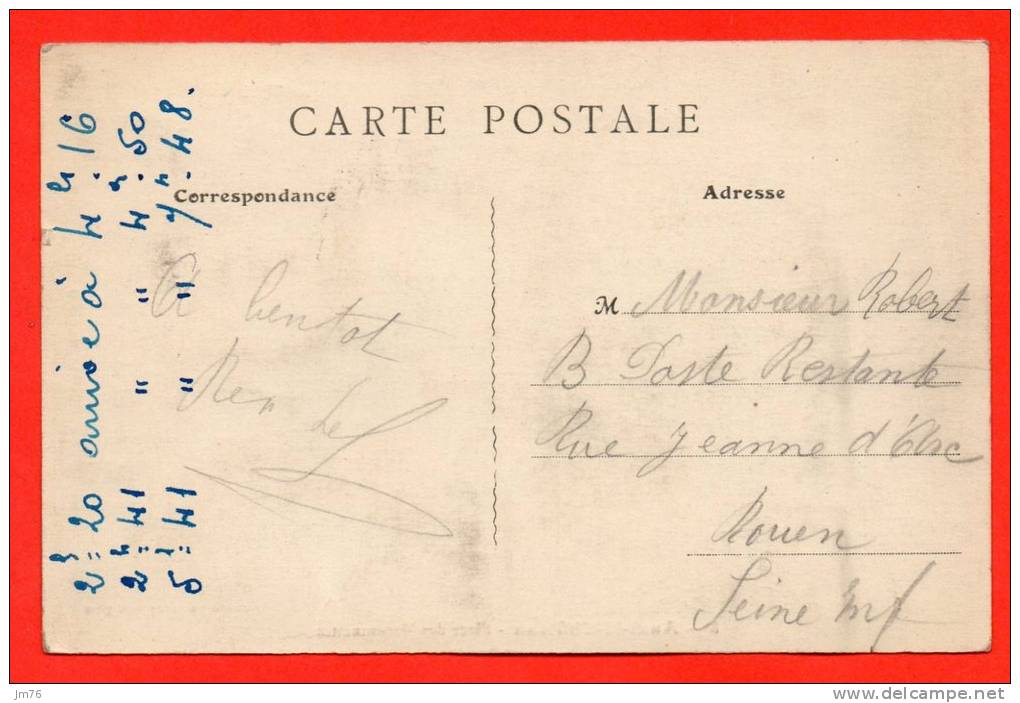 CARTE POSTALE
Correspondance
Adresse
2h 20 arrivée à 4h.16
2h 41 " " 4h.50
5h 41 " " 7h.48.
A bientot
M Monsieur Robert
B Poste Restante
Rue Jeanne d'Arc
Rouen
Seine Inf
jm76
Visit uniquecollection on delcampe.net